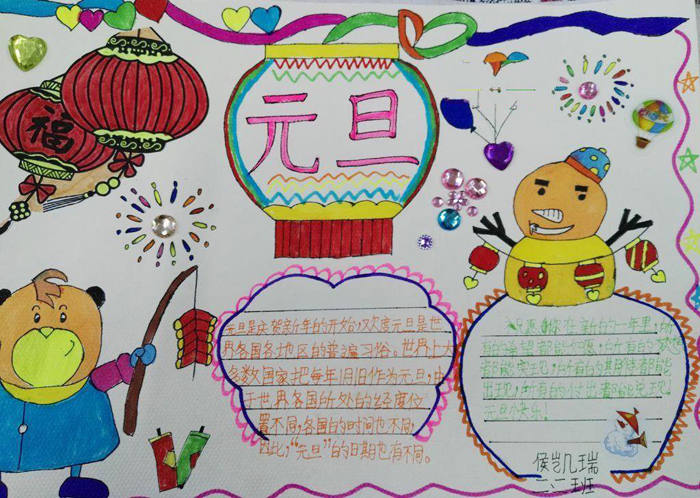 福
元旦
元旦是庆贺新年的开始,欢度元旦是世
界各国各地区的普遍习俗。世界上大
多数国家把每年1月1日作为元旦,由
于世界各国所处的经度位
置不同,各国的时间也不同,
因此,“元旦”的日期也有不同。
祝愿你在新的一年里,所
有的希望都能如愿,所有的梦想
都能实现,所有的期待都能
出现,所有的付出都能兑现!
元旦快乐!
侯岂几瑞
二、二班